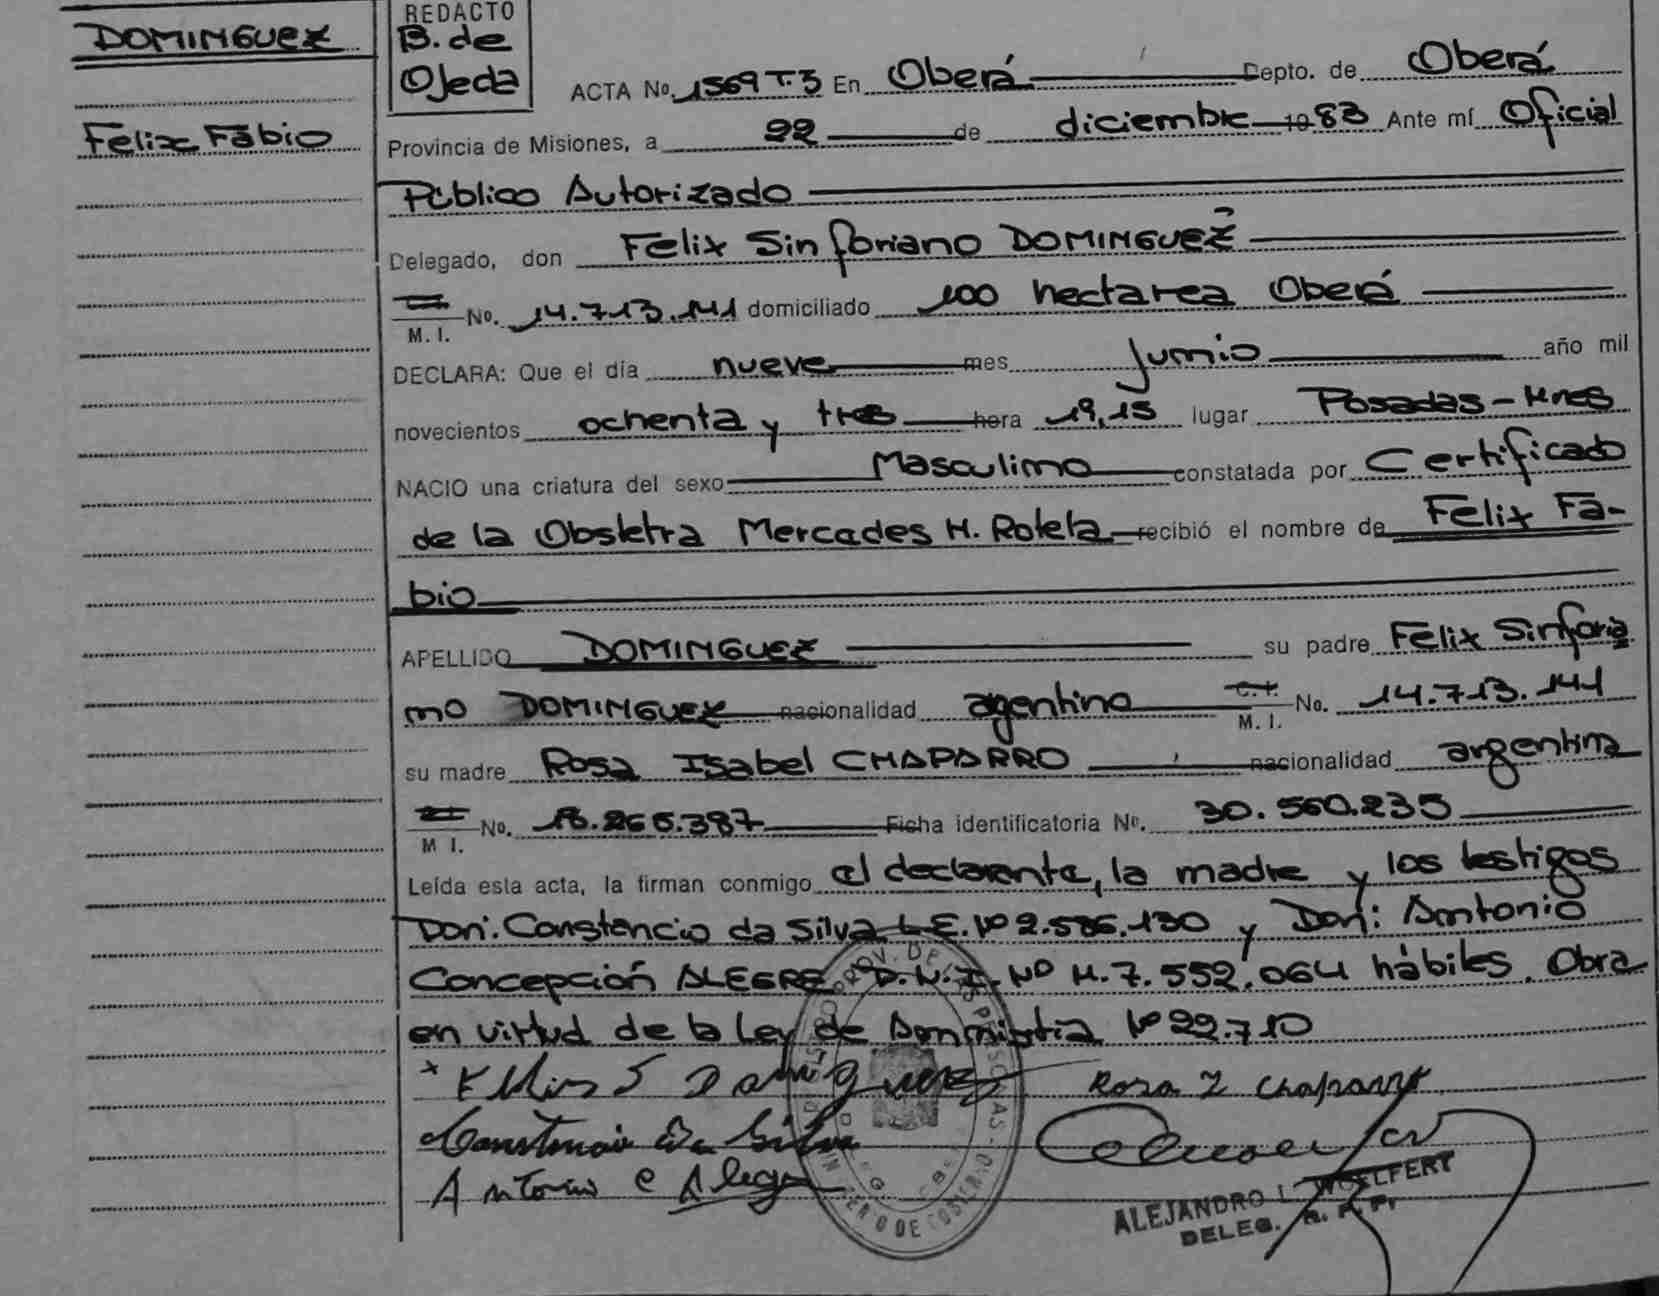 DOMINGUEZ
Felix Fabio
REDACTO
B. de
Ojeda
ACTA No. 1569 T.3 En Oberá Depto. de Oberá
Provincia de Misiones, a 22 de diciembre 1983 Ante mí Oficial
Público Autorizado
Delegado, don Felix Sinforiano DOMINGUEZ
M. I. No. 14.713.141 domiciliado 100 hectarea Oberá
DECLARA: Que el día nueve mes junio año mil
novecientos ochenta y tres hora 19,15 lugar Posadas - Mnes
NACIO una criatura del sexo Masculino constatada por Certificado
de la Obstetra Mercades H. Rotela recibió el nombre de Felix Fa-
bio
APELLIDO DOMINGUEZ su padre Felix Sinforia
no DOMINGUEZ nacionalidad argentino C. I. M. I. No. 14.713.141
su madre Rosa Isabel CHAPARRO nacionalidad argentina
M I. No. 18.265.387 Ficha identificatoria No. 30.560.235
Leída esta acta, la firman conmigo el declarante, la madre y los testigos
Don: Constancio da Silva L.E. Nº 2.586.130 y Don: Antonio
Concepción ALEGRE D.N.I. Nº M. 7.552.064 hábiles. Obra
en virtud de la Ley de Ammistia Nº 22.710
S Dominguez Rosa I Chaparro
Constancio Da Silva
Antonio C Alegre
ALEJANDRO L. WOELFERT
DELEG. R. P. P.